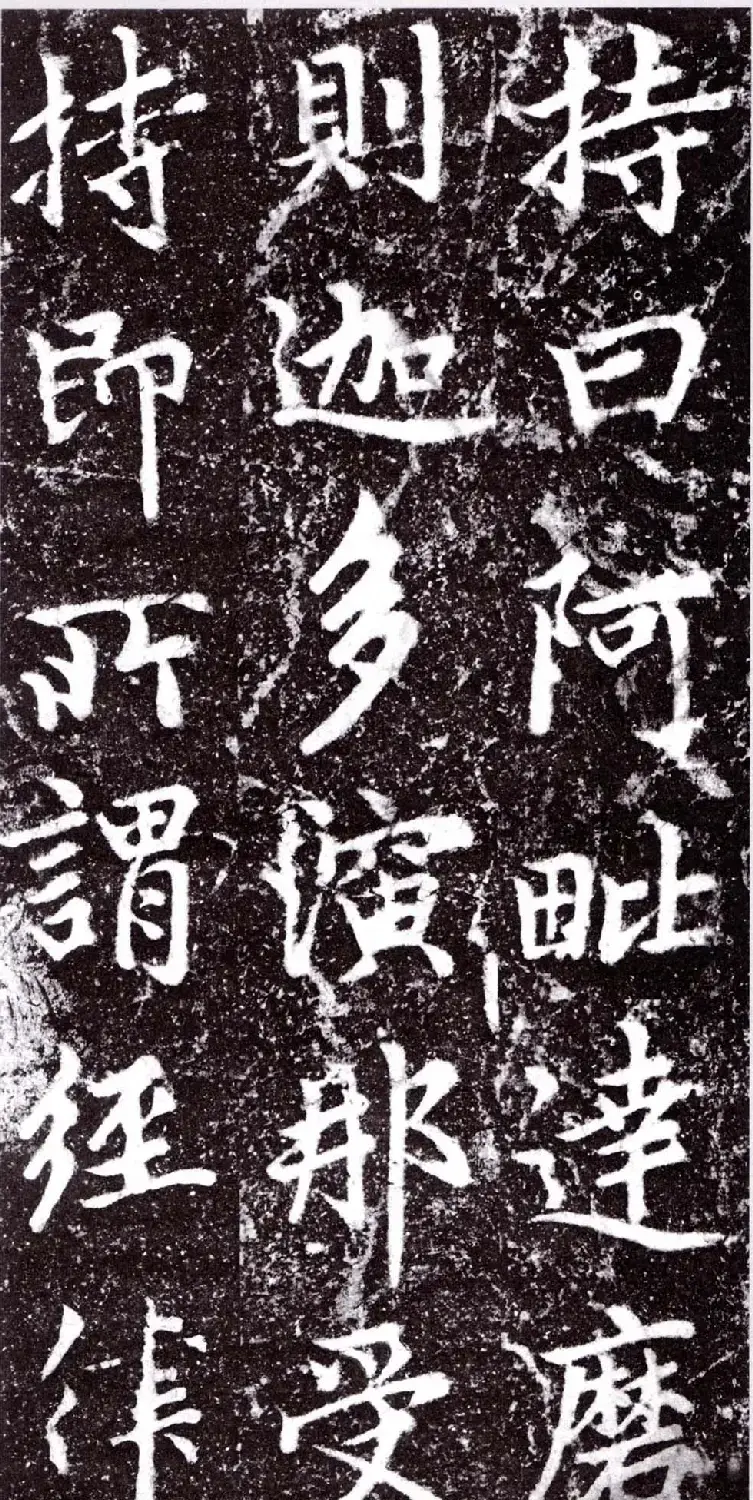 持曰阿毗達磨
則迦多演那受
持即所謂經律